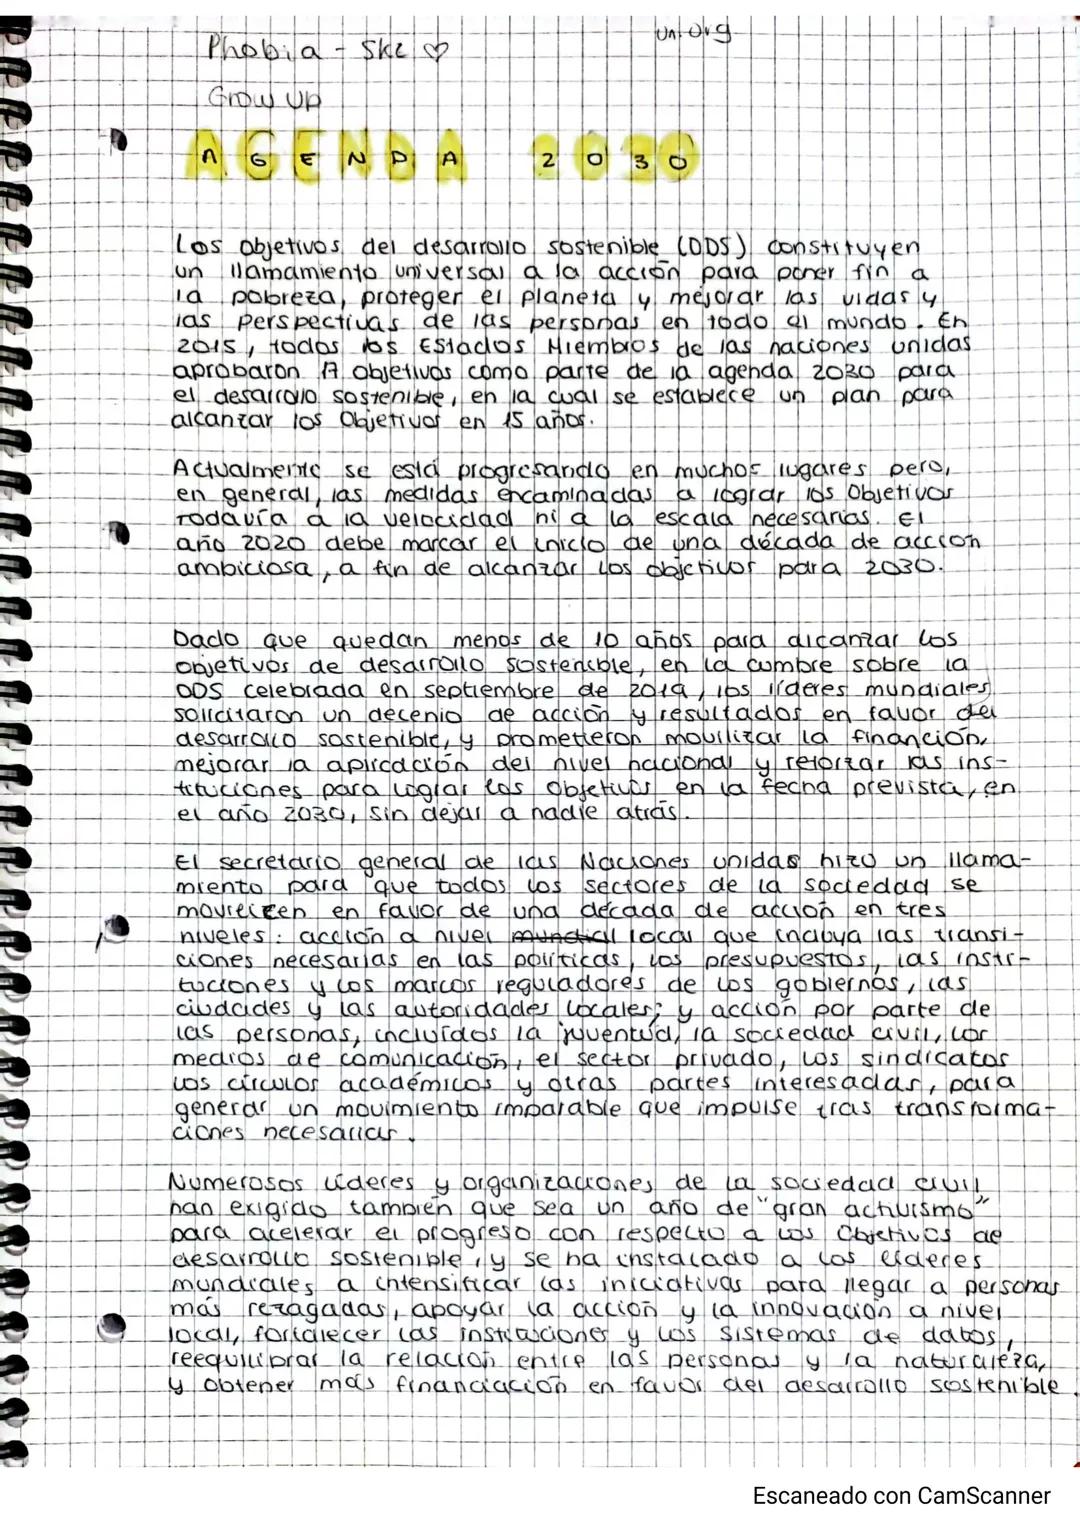 un.org
Phobia - Skz ♡
Grow up
AGENDA 2030
Los objetivos del desarrollo sostenible (ODS) constituyen
un llamamiento universal a la acción para poner fin a
la pobreza, proteger el planeta y mejorar las vidas y
las perspectivas de las personas en todo el mundo. En
2015, todos los Estados Miembros de las naciones unidas
aprobaron 17 objetivos como parte de la agenda 2030 para
el desarrollo sostenible, en la cual se establece un plan para
alcanzar los Objetivos en 15 años.
Actualmente se está progresando en muchos lugares pero,
en general, las medidas encaminadas a lograr los Objetivos
todavía a la velocidad ni a la escala necesarias. El
año 2020 debe marcar el inicio de una década de acción
ambiciosa, a fin de alcanzar los objetivos para 2030.
Dado que quedan menos de 10 años para alcanzar los
objetivos de desarrollo sostenible, en la cumbre sobre la
ODS celebrada en septiembre de 2019, los líderes mundiales
solicitaron un decenio de acción y resultados en favor del
desarrollo sostenible, y prometieron movilizar la financión,
mejorar la aplicación del nivel nacional y reforzar las ins-
tituciones para lograr los Objetivos en la fecha prevista, en
el año 2030, sin dejar a nadie atrás.
El secretario general de las Naciones unidas hizo un llama-
miento para que todos los sectores de la sociedad se
movilicen en favor de una década de acción en tres
niveles: acción a nivel mundial local que incluya las transi-
ciones necesarias en las políticas, los presupuestos, las insti-
tuciones y los marcos reguladores de los gobiernos, las
ciudades y las autoridades locales; y acción por parte de
las personas, incluidos la juventud, la sociedad civil, los
medios de comunicación, el sector privado, los sindicatos
los círculos académicos y otras partes interesadas, para
generar un movimiento imparable que impulse tras transforma-
ciones necesarias.
Numerosos líderes y organizaciones de la sociedad civil
han exigido también que sea un año de "gran activismo"
para acelerar el progreso con respecto a los Objetivos de
desarrollo sostenible, y se ha instalado a los líderes
mundiales a intensificar las iniciativas para llegar a personas
más rezagadas, apoyar la acción y la innovación a nivel
local, fortalecer las instituciones y los sistemas de datos,
reequilibrar la relación entre las personas y la naturaleza,
y obtener más financiación en favor del desarrollo sostenible.
Escaneado con CamScanner